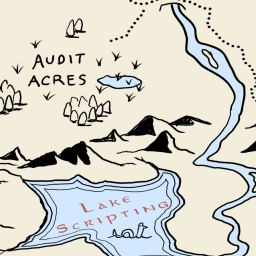 AUDIT
ACRES
LAKE
SCRIPTING
salt